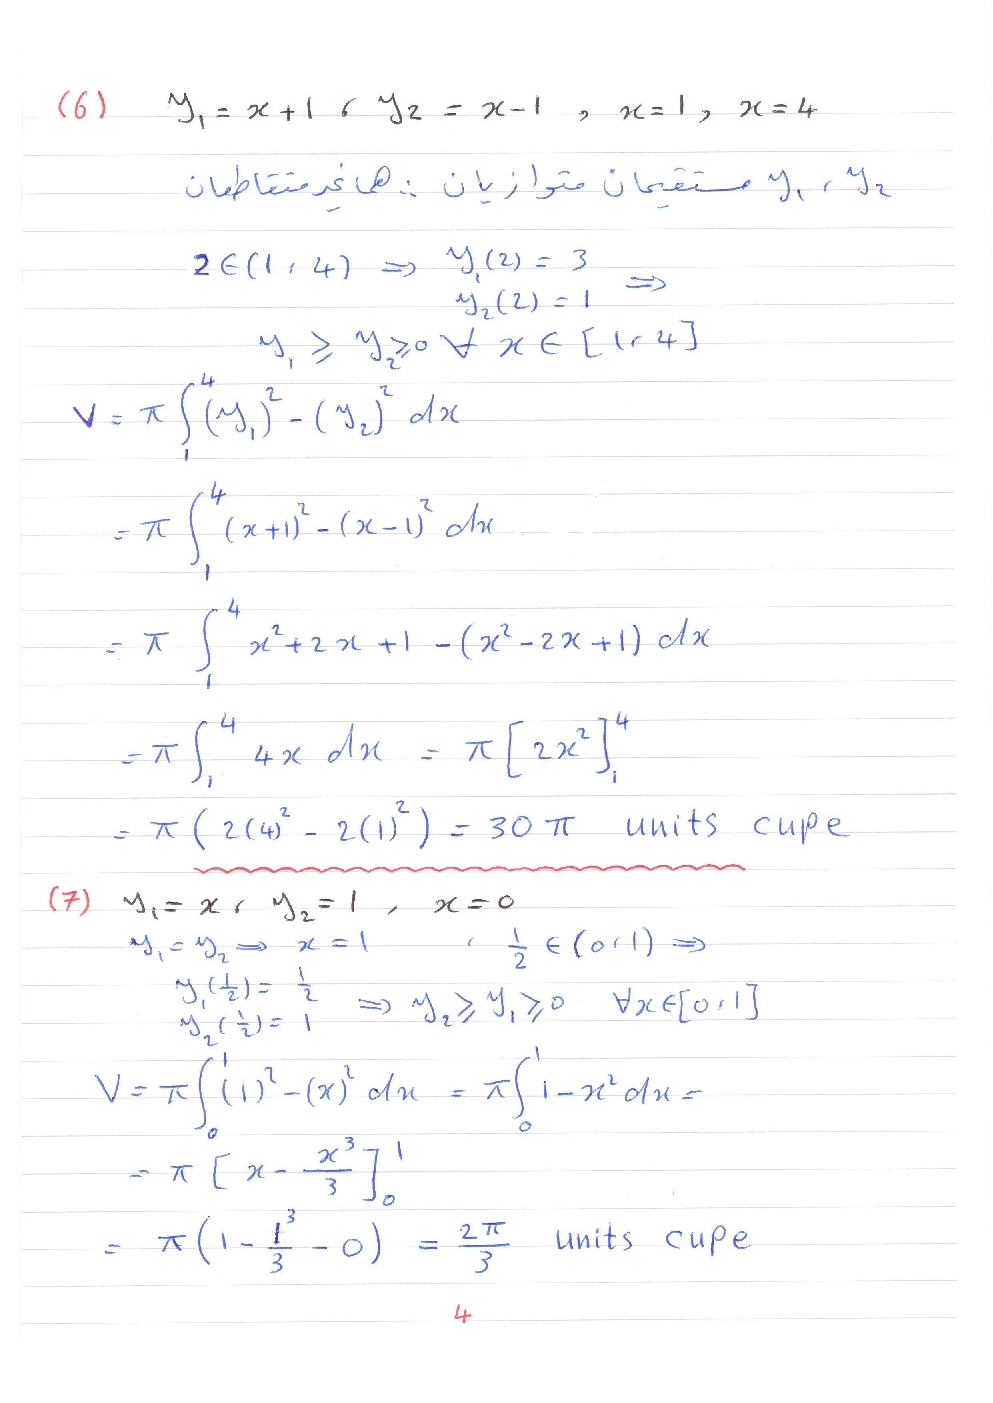 (6) y₁ = x+1 ، y₂ = x-1 , x=1 , x=4
y₁ ، y₂ مستقيمان متوازيان ∴ هما غير متقاطعان
2 ∈ (1 ، 4) ⇒ y₁(2) = 3
y₂(2) = 1 ⇒
y₁ ⩾ y₂ ⩾ 0 ∀ x ∈ [1 ، 4]
V = π ∫₁⁴ (y₁)² - (y₂)² dx
= π ∫₁⁴ (x+1)² - (x-1)² dx
= π ∫₁⁴ x²+2x+1 - (x²-2x+1) dx
= π ∫₁⁴ 4x dx = π [2x²]₁⁴
= π (2(4)² - 2(1)²) = 30 π units cupe
(7) y₁ = x ، y₂ = 1 , x = 0
y₁ = y₂ ⇒ x = 1 ، 1/2 ∈ (0 ، 1) ⇒
y₁(1/2) = 1/2
y₂(1/2) = 1 ⇒ y₂ ⩾ y₁ ⩾ 0 ∀x∈[0 ، 1]
V = π ∫₀¹ (1)² - (x)² dx = π ∫₀¹ 1 - x² dx =
= π [x - x³/3]₀¹
= π (1 - 1³/3 - 0) = 2π/3 units cupe
4